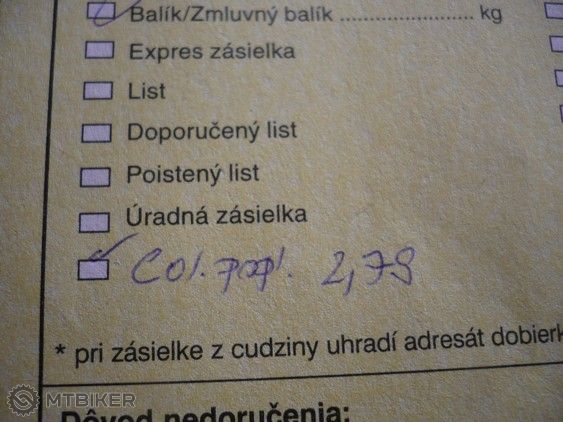 Balík/Zmluvný balík ........................ kg
Expres zásielka
List
Doporučený list
Poistený list
Úradná zásielka
Col. popl. 2,79
* pri zásielke z cudziny uhradí adresát dobierk
Dôvod nedoručenia:
MTBIKER